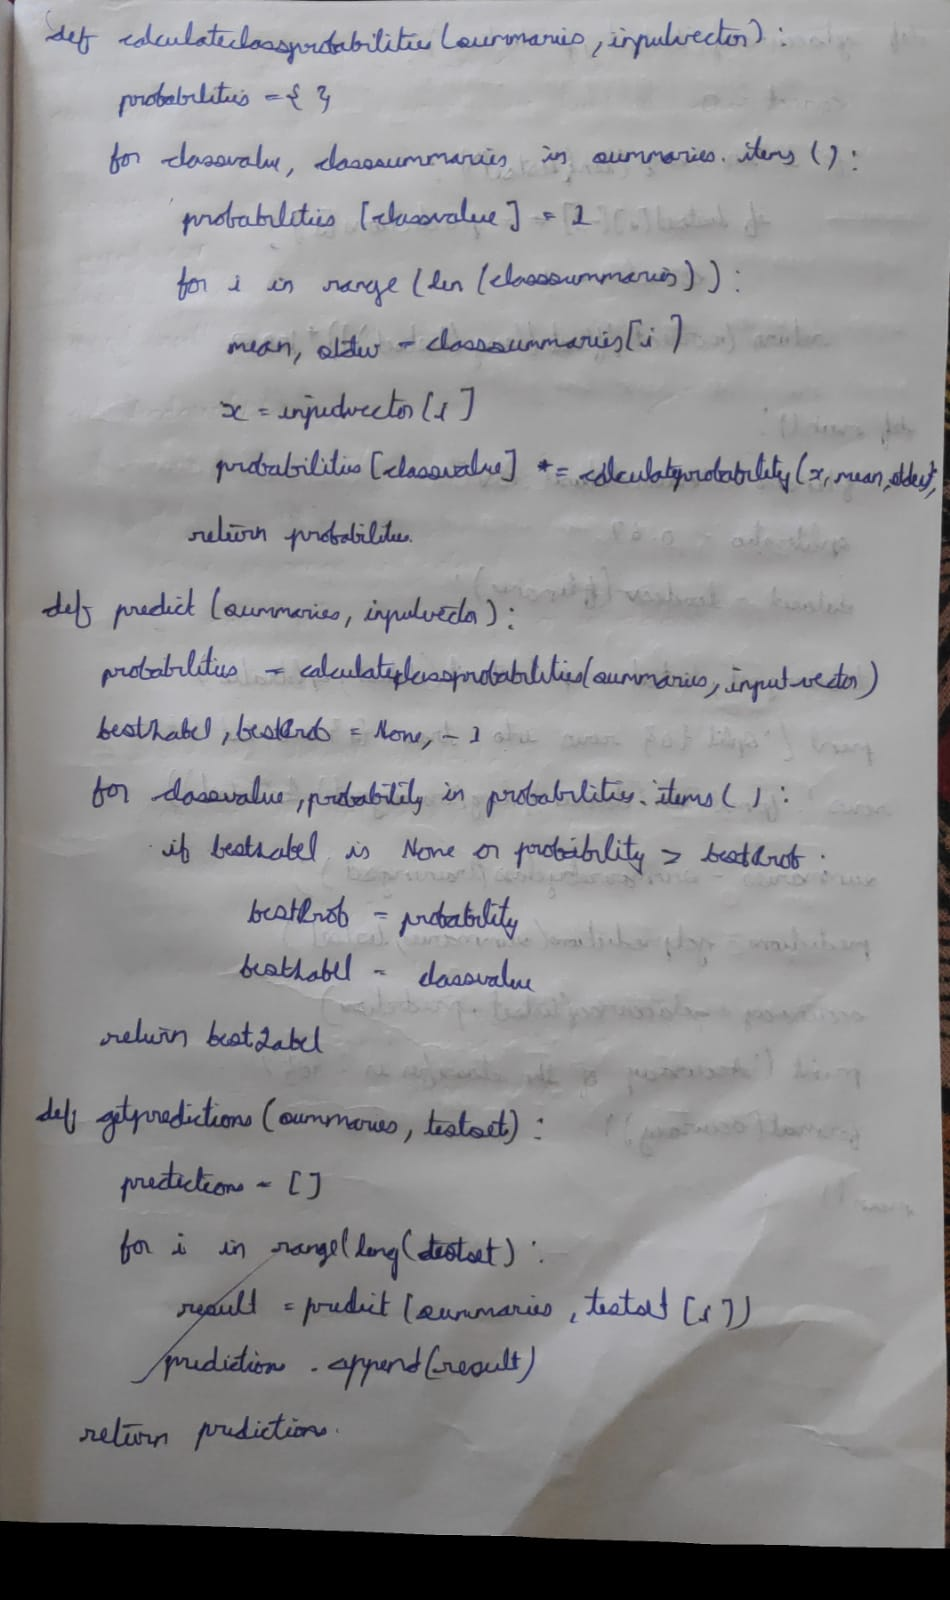 def calculateclassprobabilities (summaries, inputvector):
probabilities = { }
for classvalue, classsummaries in summaries. items ( ):
probabilities [classvalue] = 1
for i in range (len (classsummaries) ) :
mean, stdev = classsummaries [i]
x = inputvector [i]
probabilities [classvalue] *= calculateprobability (x, mean, stdev)
return probabilities.
def predict (summaries, inputvector):
probabilities = calculateclassprobabilities (summaries, input-vector)
bestLabel, bestProb = None, - 1
for classvalue, probability in probabilities. items ( ) :
if bestLabel is None or probability > bestProb .
bestProb = probability
bestLabel = classvalue
return bestLabel
def getpredictions (summaries, testset) :
predictions = [ ]
for i in range (leng (testset) :
result = predict (summaries, testset [i])
prediction . append (result)
return predictions.